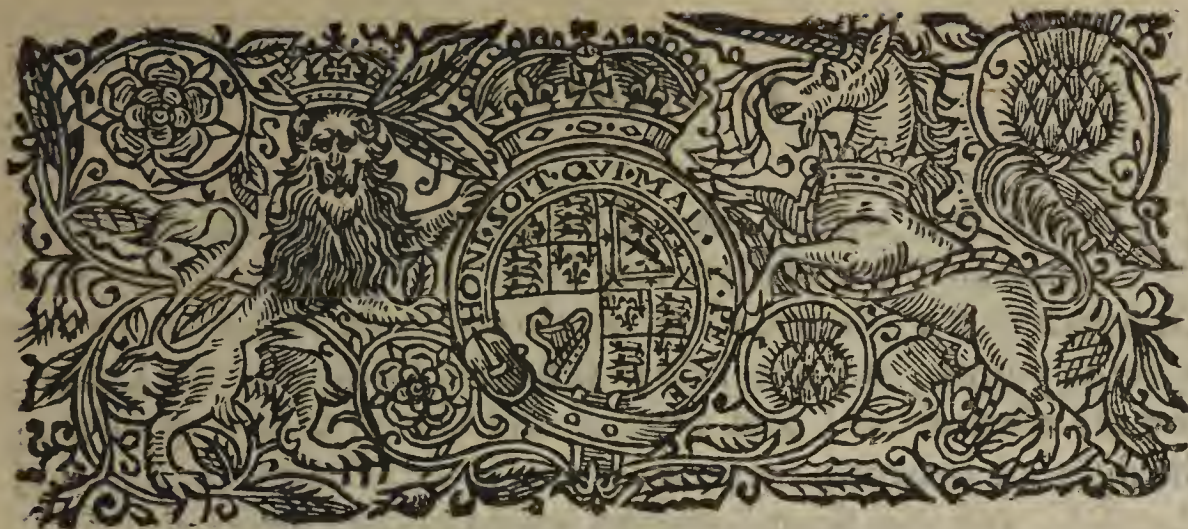 HONI·SOIT·QVI·MAL·Y·PENSE